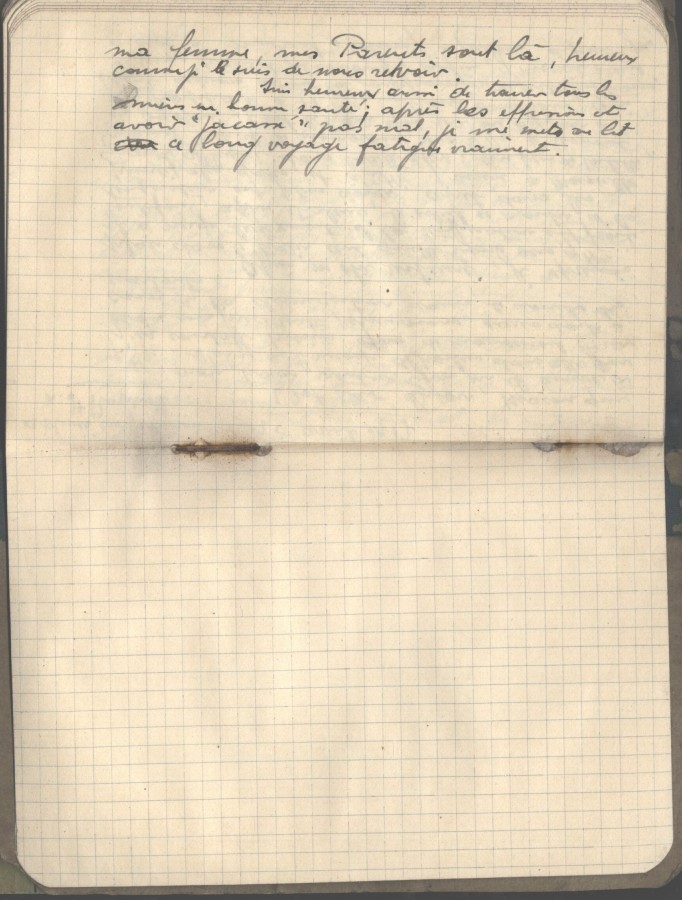 ma femme, mes Parents sont là, heureux
comme je le suis de nous revoir.
Suis heureux aussi de trouver tous les
miens en bonne santé ; après les effusions et
avoir "jacassé" pas mal, je me mets au lit
ce long voyage fatigue vraiment.